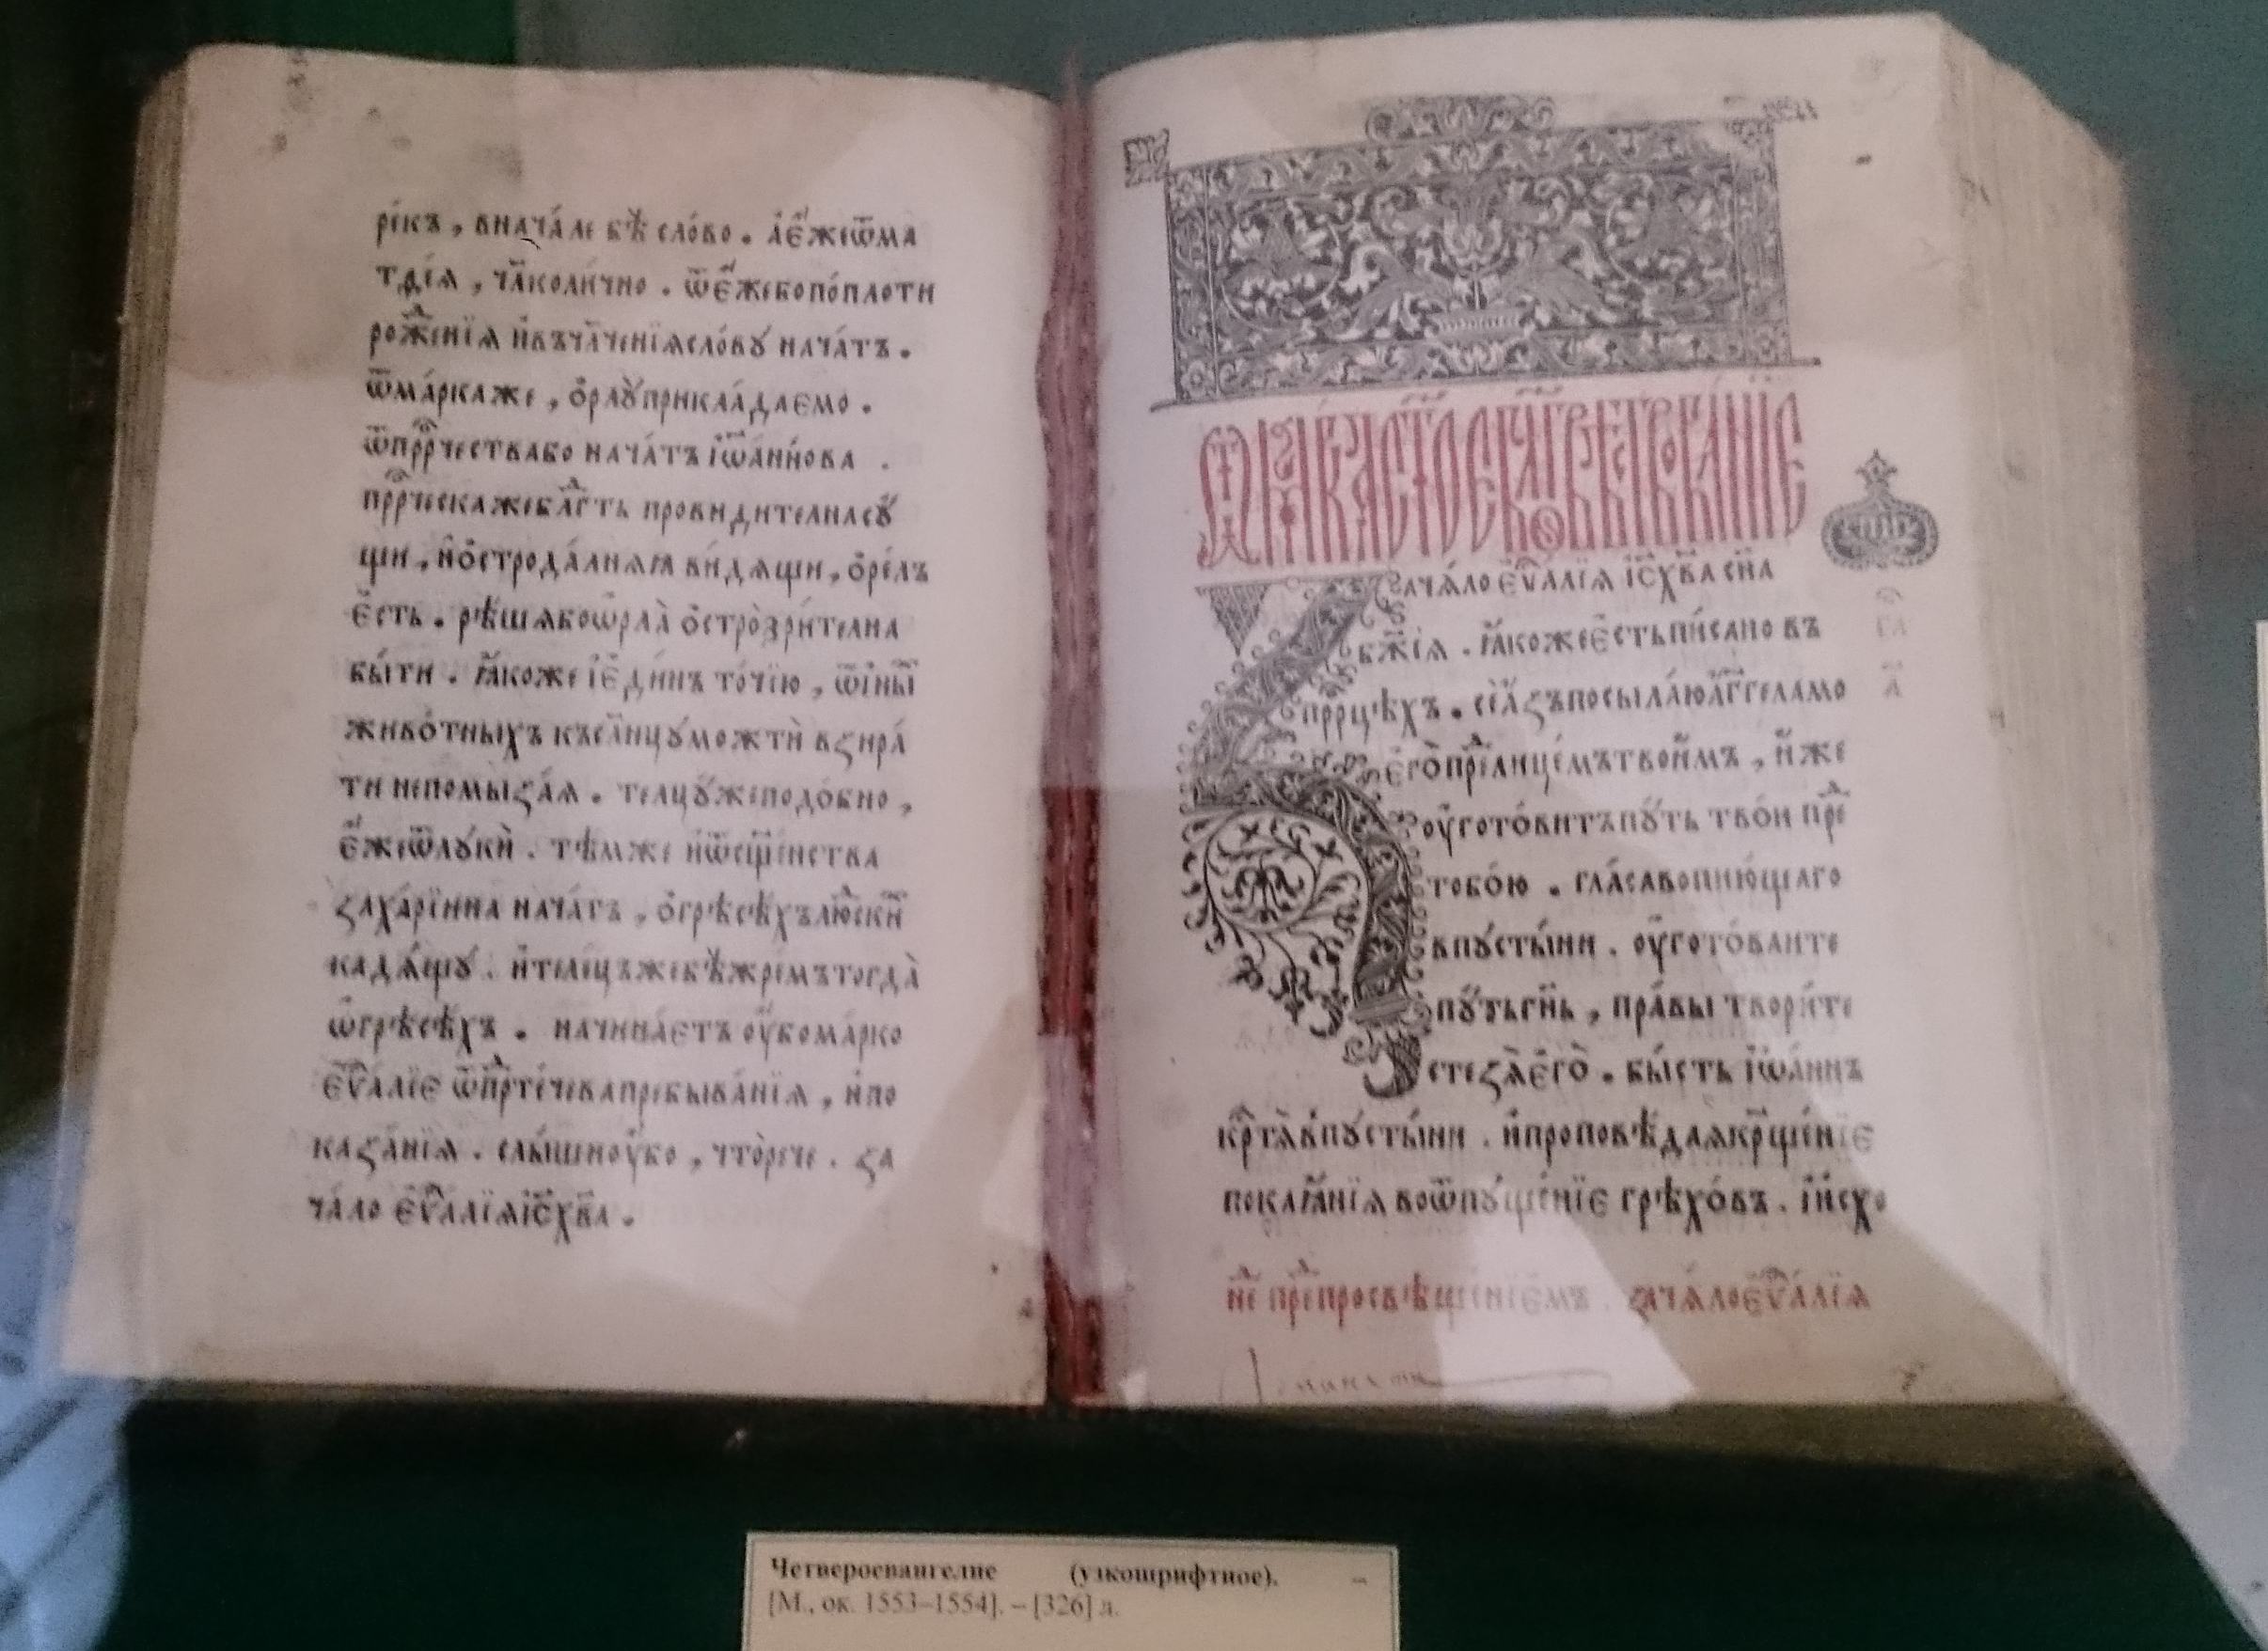 ре́къ, внача́ле бѣ̀ сло́во. а҆є҆́жеѿма
тѳе́ꙗ, чл҃коли́чно. ѿє҆́жебопо́плоти
рож҃енїѧ и҆въчл҃ченїѧсло́ву нача́тъ.
ѿма́ркаже, ѻ҆рлꙋ̀прикла́даємо.
ѿпрⷪ҇рчествабо нача́тъ і҆ѡа́ннова.
прⷪ҇рческажебл҃гⷣть провидителнасꙋ
щи, и҆ѻ҆строда́лнѧꙗ ви́дѧщи, ѻ҆ре́лъ
є҆́сть. рѣ́шѧбоѡ҆рла̀ ѻ҆стро̀зри́телна
бы́ти. ꙗ҆́коже і҆є҆ди́нъ то́чїю, ѿі҆ны́
живо́тныхъ къслн҃цꙋможтѝ взира́
ти непомыза́ѧ. телцꙋ́жеподо́бно,
є҆́жеѿлꙋкѝ. тѣ́мже и҆ѿсщ҃е́нства
заха́рїина нача́тъ, ѻ҆грѣсѣ́хълюⷣски
кадѧ́щꙋ. и҆теле́цъжебѣ̀жре́мътогда̀
ѡ҆грѣсѣ́хъ. начина́єтъ оу҆̀бома́рко
є҆ѵⷢ҇а́лїє ѿпрⷣте́чевапребыва́нїѧ, и҆по
каза́нїѧ. слы́шиоу҆̀бо, что̀рече. за
ча́ло є҆ѵⷢ҇а́лїѧі҆с҃хв҃а.
Ѿма́рка ст҃ое бл҃говѣствова́нїе
ача́ло є҆ѵⷢ҇а́лїѧ і҆с҃хв҃а сн҃а
бж҃їѧ. ꙗ҆́кожеє҆́стьпи́сано въ
прⷪ҇рцѣхъ. се́а҆́зъпосыла́юа҆́гг҃еламо
є҆го̀преⷣлице́мътвои́мъ, и҆́же
оу҆гото́витъпꙋ́ть тво́и преⷣ
тобо́ю. гла́савопию́щаго
впꙋсты́ни. оу҆гото́ваите
пꙋ́тьгн҃ь, пра́вы твори́те
стезѧ̀є҆го̀. бы́сть і҆ѡа́ннъ
крⷭ҇тѧ̀впꙋсты́ни. и҆проповѣ́даѧкрⷭ҇ще́нїє
покаꙗ́нїѧ воѿпꙋще́нїє грѣхо́въ. і҆и҆схо
неⷣ преⷣпросвѣще́нїємъ. зача́лоє҆ѵⷢ҇а́лїѧ
Четвероевангелие (узкошрифтное). –
[М., ок. 1553–1554]. – [326] л.